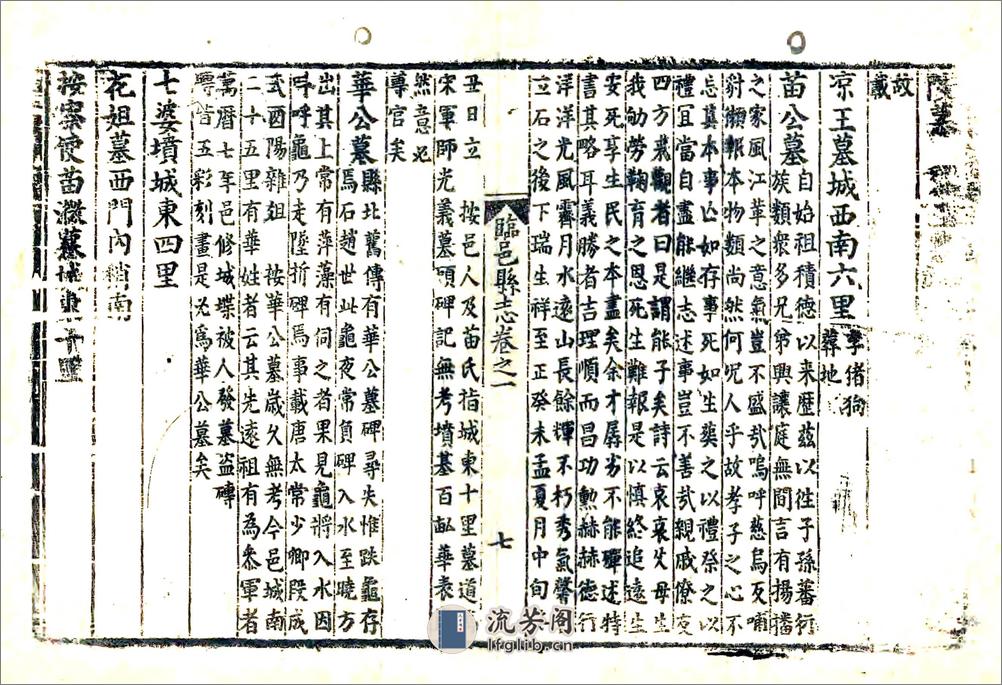 陵墓
故
藏
凉王墓城西南六里李猪狗
葬地
苗公墓自始祖積德以来歴兹以徃子孫蕃衍
族類衆多兄弟興讓庭無間言有揚播
之家風江革之意氣豈不盛哉嗚呼慈烏反哺
豺獺報本物類尚然何况人乎故孝子之心不
忘其本事亡如存事死如生葬之以禮祭之以
禮冝當自盡能繼志述事豈不善哉親戚僚友
四方来觀者曰是謂能子矣詩云哀哀父母生
我劬勞鞠育之恩死生難報是以慎終追遠生
安死享生民之本盡矣余才孱劣不能殫述特
書其略耳義勝者吉理順而昌功勲赫赫徳行
洋洋光風霽月水遠山長餘輝不朽秀氣馨
立石之後下瑞生祥至正癸未孟夏月中旬
臨邑縣志卷之一
七
丑日立 按邑人及苗氏指城東十里墓道
宋軍師光義墓項碑記無考墳基百畝華表
然意必
尊官矣
華公墓縣北舊傳有華公墓碑尋失惟趺龜存
焉石趙世此龜夜常負碑入水至曉方
出其上常有萍藻有伺之者果見龜將入水因
呌呼龜乃走墜折碑焉事載唐太常少卿段成
式酉陽雜俎 按華公墓歳久無考今邑城南
二十五里有華姓者云其先逺祖有為叅軍者
萬曆七年邑修城堞被人發墓盗磚
磚皆五彩刻畫是必爲華公墓矣
七婆墳城東四里
花姐墓西門內稍南
按察使苗 墓城東十里
流芳阁
lfglib.cn